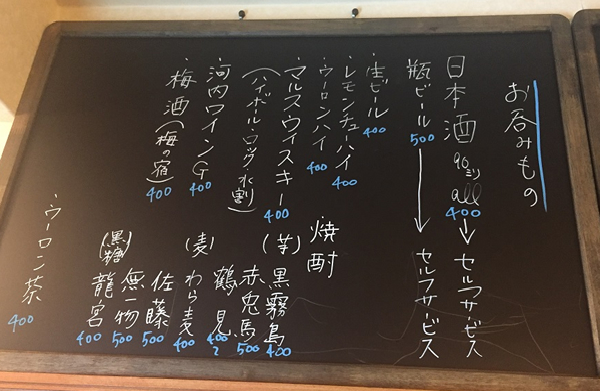 お呑みもの
日本酒 90ミリ all 400 → セルフサービス
瓶ビール 500 → セルフサービス
・生ビール 400
・レモンチューハイ 400
・ウーロンハイ 400
・マルスウイスキー 400
(ハイボール・ロック・水割)
・河内ワインG 400
・梅酒(梅の宿) 400
焼酎
(芋) 黒霧島 400
赤兎馬 500
鶴見 400
(麦) わら麦 400
佐藤 500
無一物 500
(黒糖) 龍宮 400
・ウーロン茶 400